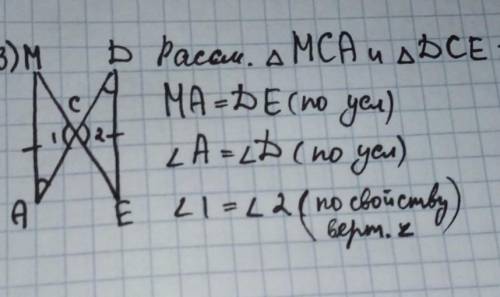 3) M D Рассм. △ MCA и △ DCE
C MA = DE (по усл)
1 2 ∠A = ∠D (по усл)
A E ∠1 = ∠2 (по свойству
верт. ∠)